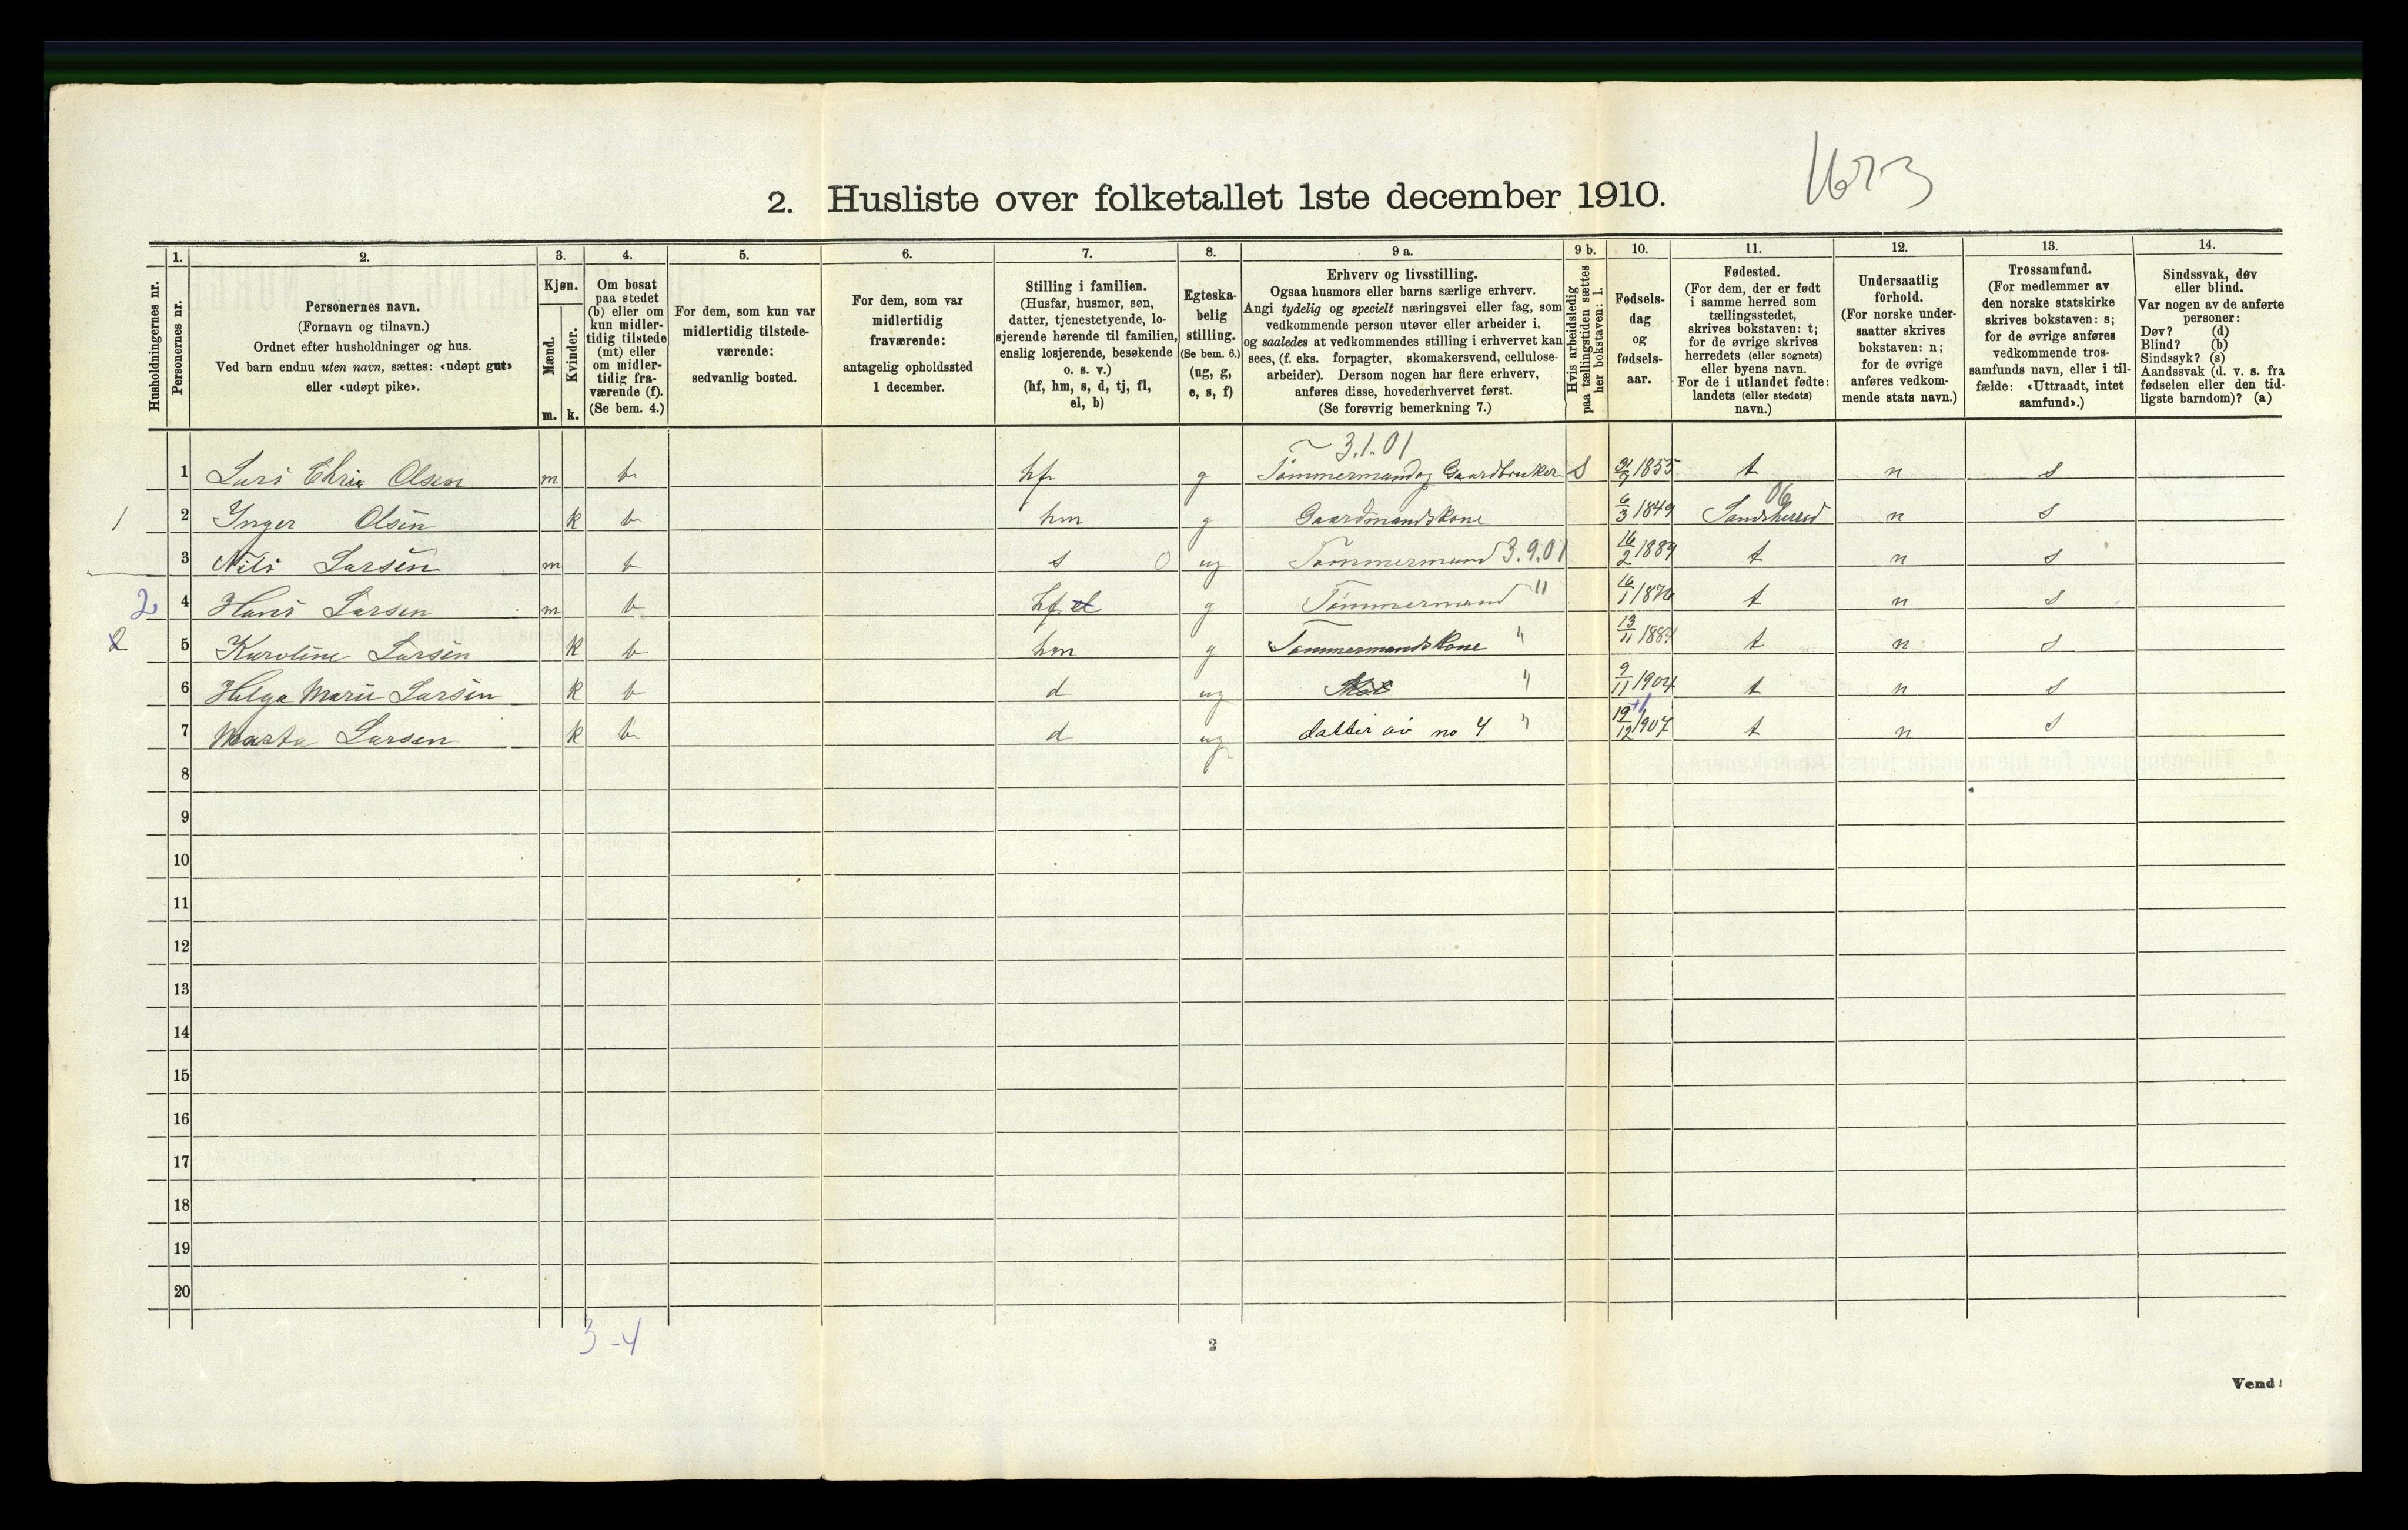 1673
2. Husliste over folketallet 1ste december 1910.
Husholdningernes nr.
1.
Personernes nr.
2.
Personernes navn.
(Fornavn og tilnavn.)
Ordnet efter husholdninger og hus.
Ved barn endnu uten navn, sættes: «udøpt gut»
eller «udøpt pike».
3.
Kjøn.
Mænd.
m.
Kvinder.
k.
4.
Om bosat
paa stedet
(b) eller om
kun midler-
tidig tilstede
(mt) eller
om midler-
tidig fra-
værende (f).
(Se bem. 4.)
5.
For dem, som kun var
midlertidig tilstede-
værende:
sedvanlig bosted.
6.
For dem, som var
midlertidig
fraværende:
antagelig opholdssted
1 december.
7.
Stilling i familien.
(Husfar, husmor, søn,
datter, tjenestetyende, lo-
sjerende hørende til familien,
enslig losjerende, besøkende
o. s. v.)
(hf, hm, s, d, tj, fl,
el, b)
8.
Egteska-
belig
stilling.
(Se bem. 6.)
(ug, g,
e, s, f)
9 a.
Erhverv og livsstilling.
Ogsaa husmors eller barns særlige erhverv.
Angi tydelig og specielt næringsvei eller fag, som
vedkommende person utøver eller arbeider i,
og saaledes at vedkommendes stilling i erhvervet kan
sees, (f. eks. forpagter, skomakersvend, cellulose-
arbeider). Dersom nogen har flere erhverv,
anføres disse, hovederhvervet først.
(Se forøvrig bemerkning 7.)
9 b.
Hvis arbeidsledig
paa tællingstiden sættes
her bokstaven: l.
10.
Fødsels-
dag
og
fødsels-
aar.
11.
Fødested.
(For dem, der er født
i samme herred som
tællingsstedet,
skrives bokstaven: t;
for de øvrige skrives
herredets (eller sognets)
eller byens navn.
For de i utlandet fødte:
landets (eller stedets)
navn.)
12.
Undersaatlig
forhold.
(For norske under-
saatter skrives
bokstaven: n;
for de øvrige
anføres vedkom-
mende stats navn.)
13.
Trossamfund.
(For medlemmer av
den norske statskirke
skrives bokstaven: s;
for de øvrige anføres
vedkommende tros-
samfunds navn, eller i til-
fælde: «Uttraadt, intet
samfund».)
14.
Sindssvak, døv
eller blind.
Var nogen av de anførte
personer:
Døv? (d)
Blind? (b)
Sindssyk? (s)
Aandssvak (d. v. s. fra
fødselen eller den tid-
ligste barndom)? (a)
3.1.01
1 Lars Chris Olsen m b hf g Tømmermand og Gaardbruker S 1855 t n s
06
1 2 Inger Olsen k b hm g Gaardmandskone 6/3 1849 Sandsherred n s
3 Nils Larsen m b s 0 ug Tømmermand 3.9.01 16/2 1889 t n s
2 4 Hans Larsen m b hf el g Tømmermand " t n s
2 5 Karoline Larsen k b hm g Tømmermandskone " 13/11 t n s
6 Helga Marie Larsen k b d ug " 9/11 1904 t n s
+1
7 Marta Larsen k b d ug datter av no 4 " 19/12 1907 t n s
8
9
10
11
12
13
14
15
16
17
18
19
20
3 - 4
2
Vend!